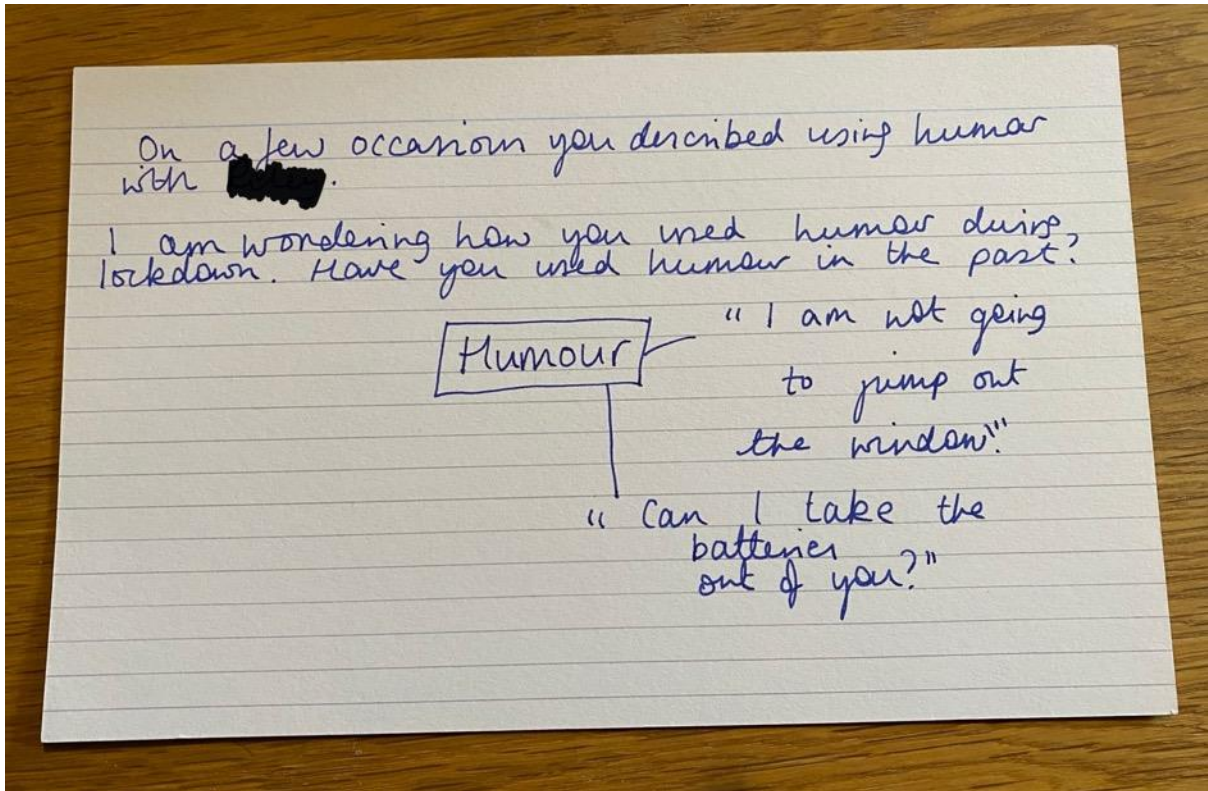 On a few occasions you described using humor
with
I am wondering how you used humor during
lockdown. Have you used humour in the past?
Humour
" I am not going
to jump out
the window!"
" Can I take the
batteries
out of you?"